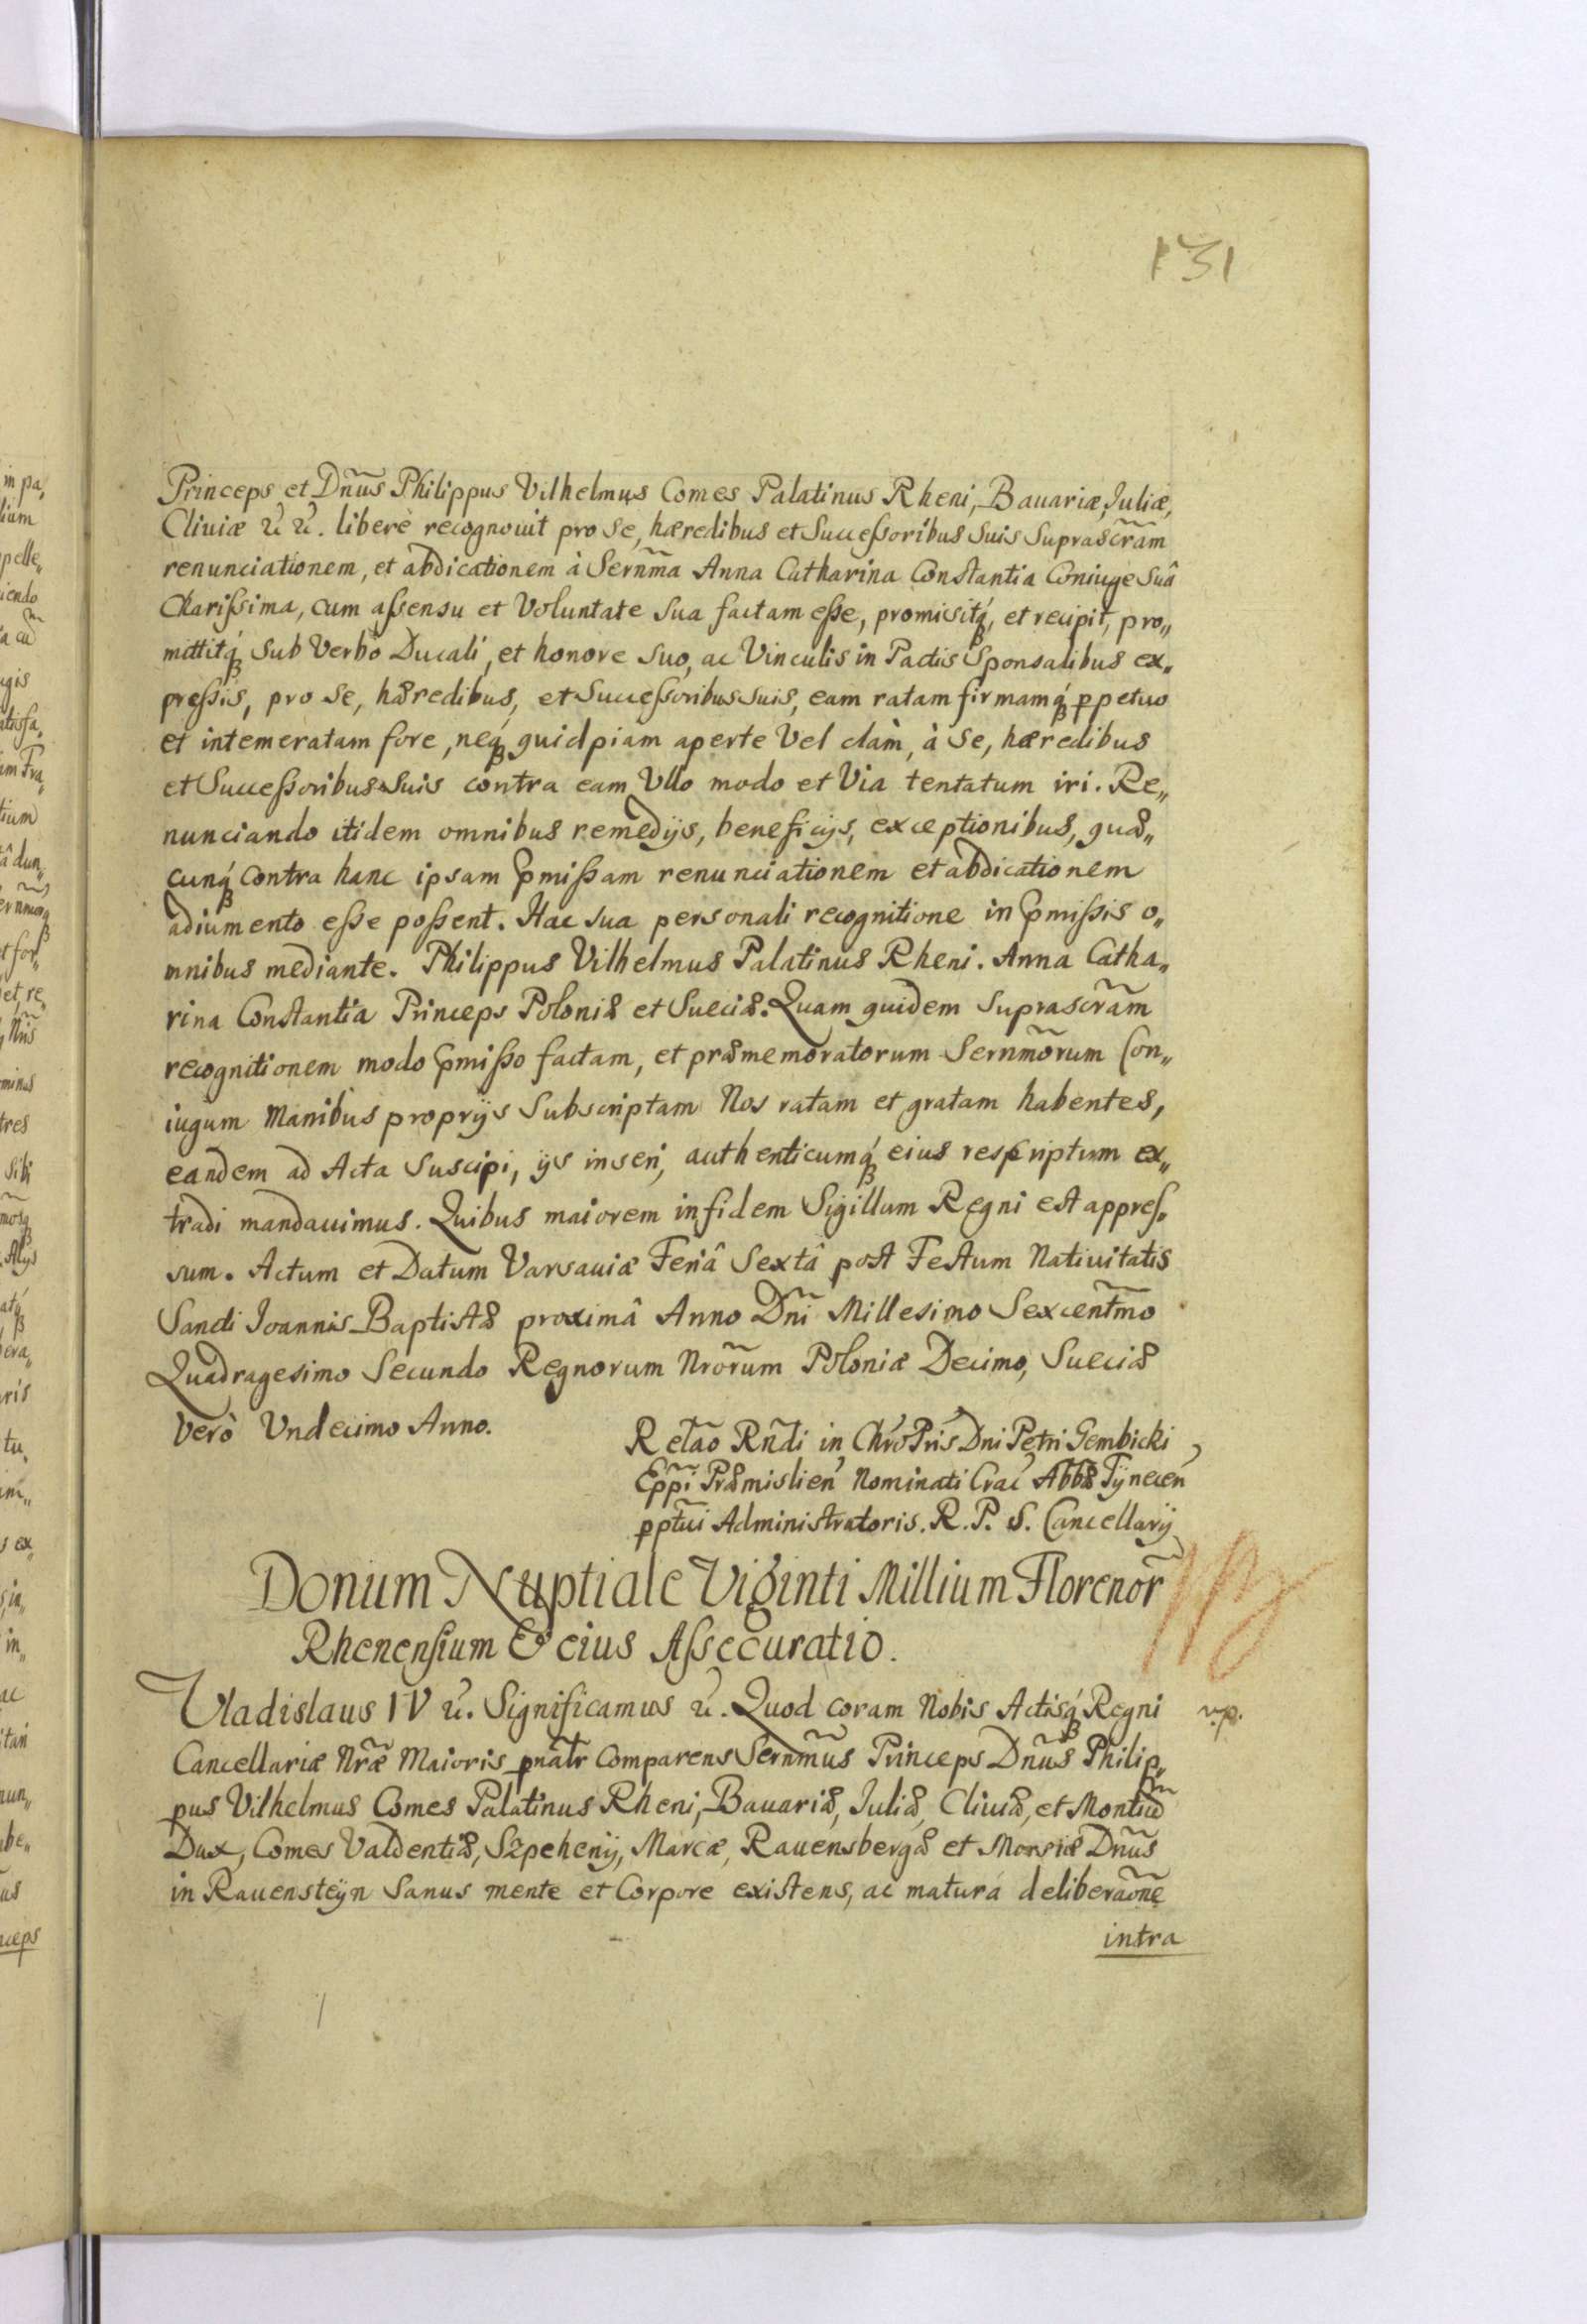 131
Princeps et Dñus Philippus Vilhelmus Comes Palatinus Rheni, Bauariæ, Iuliæ,
Cliuiæ &c. &c. liberè recognouit pro se, hæredibus et Successoribus Suis Suprascr̃am
renunciationem, et abdicationem à Sernm̃a Anna Catharina Constantia Coniuge Suâ
Charissima, cum assensu et Voluntate Sua factam esse, promisitq́ꝫ, et recipit, pro„
mittitq́ꝫ Sub Verbo Ducali, et honore Suo, ac Vinculis in Pactis Sponsalibus ex„
pressis, pro se, hæredibus, et Successoribus suis, eam ratam firmamq́ꝫ ꝑpetuo
et intemeratam fore, neq́ꝫ quidpiam aperte Vel clàm, à Se, hæredibus
et Successoribus Suis contra eam Vllo modo et Via tentatum iri. Re„
nunciando itidem omnibus remedijs, beneficijs, exceptionibus, quæ„
cunq́ꝫ contra hanc ipsam p̃missam renunciationem et abdicationem
adiumento esse possent. Hac sua personali recognitione in p̃missis o„
mnibus mediante. Philippus Vilhelmus Palatinus Rheni. Anna Catha„
rina Constantia Princeps Poloniæ et Sueciæ. Quam quidem Suprascr̃am
recognitionem modo p̃misso factam, et præmemoratorum Sernmõrum Con„
iugum Manibus proprijs Subscriptam Nos ratam et gratam habentes,
eandem ad Acta Suscipi, ijs inseri, authenticumq́ꝫ eius rescriptum ex„
tradi mandauimus. Quibus maiorem in fidem Sigillum Regni est appres„
sum. Actum et Datum Varsauiæ Feriâ Sextâ post Festum Natiuitatis
Sancti Ioannis Baptistæ proximâ Anno Dñi Millesimo Sexcentm̃o
Quadragesimo Secundo Regnorum Nrõrum Poloniæ Decimo, Sueciæ
Verò Vndecimo Anno.
Relaõ Rñdi in Chrõ Pris Dni Petri Gembicki
Epp̃i Præmislień Nominati Crać Abbæ Tÿneceń
ꝑptui Administratoris. R. P. S. Cancellarij
Donum Nuptiale Viginti Millium Florenor̃
Rhenensium & eius Assecuratio.
Vladislaus IV &c. Significamus &c. Quod coram Nobis Actisq́ꝫ Regni
Cancellariæ Nr̃æ Maioris ꝑnal̃r Comparens Sernm̃us Princeps Dñus Philip„
pus Vilhelmus Comes Palatinus Rheni, Bauariæ, Iuliæ, Cliuiæ, et Montiũ
Dux, Comes Valdentiæ, Szpehenij, Marcæ, Rauensbergæ et Morsiæ Dñus
in Rauensteÿn Sanus mente et Corpore existens, ac maturá deliberaõne
intra